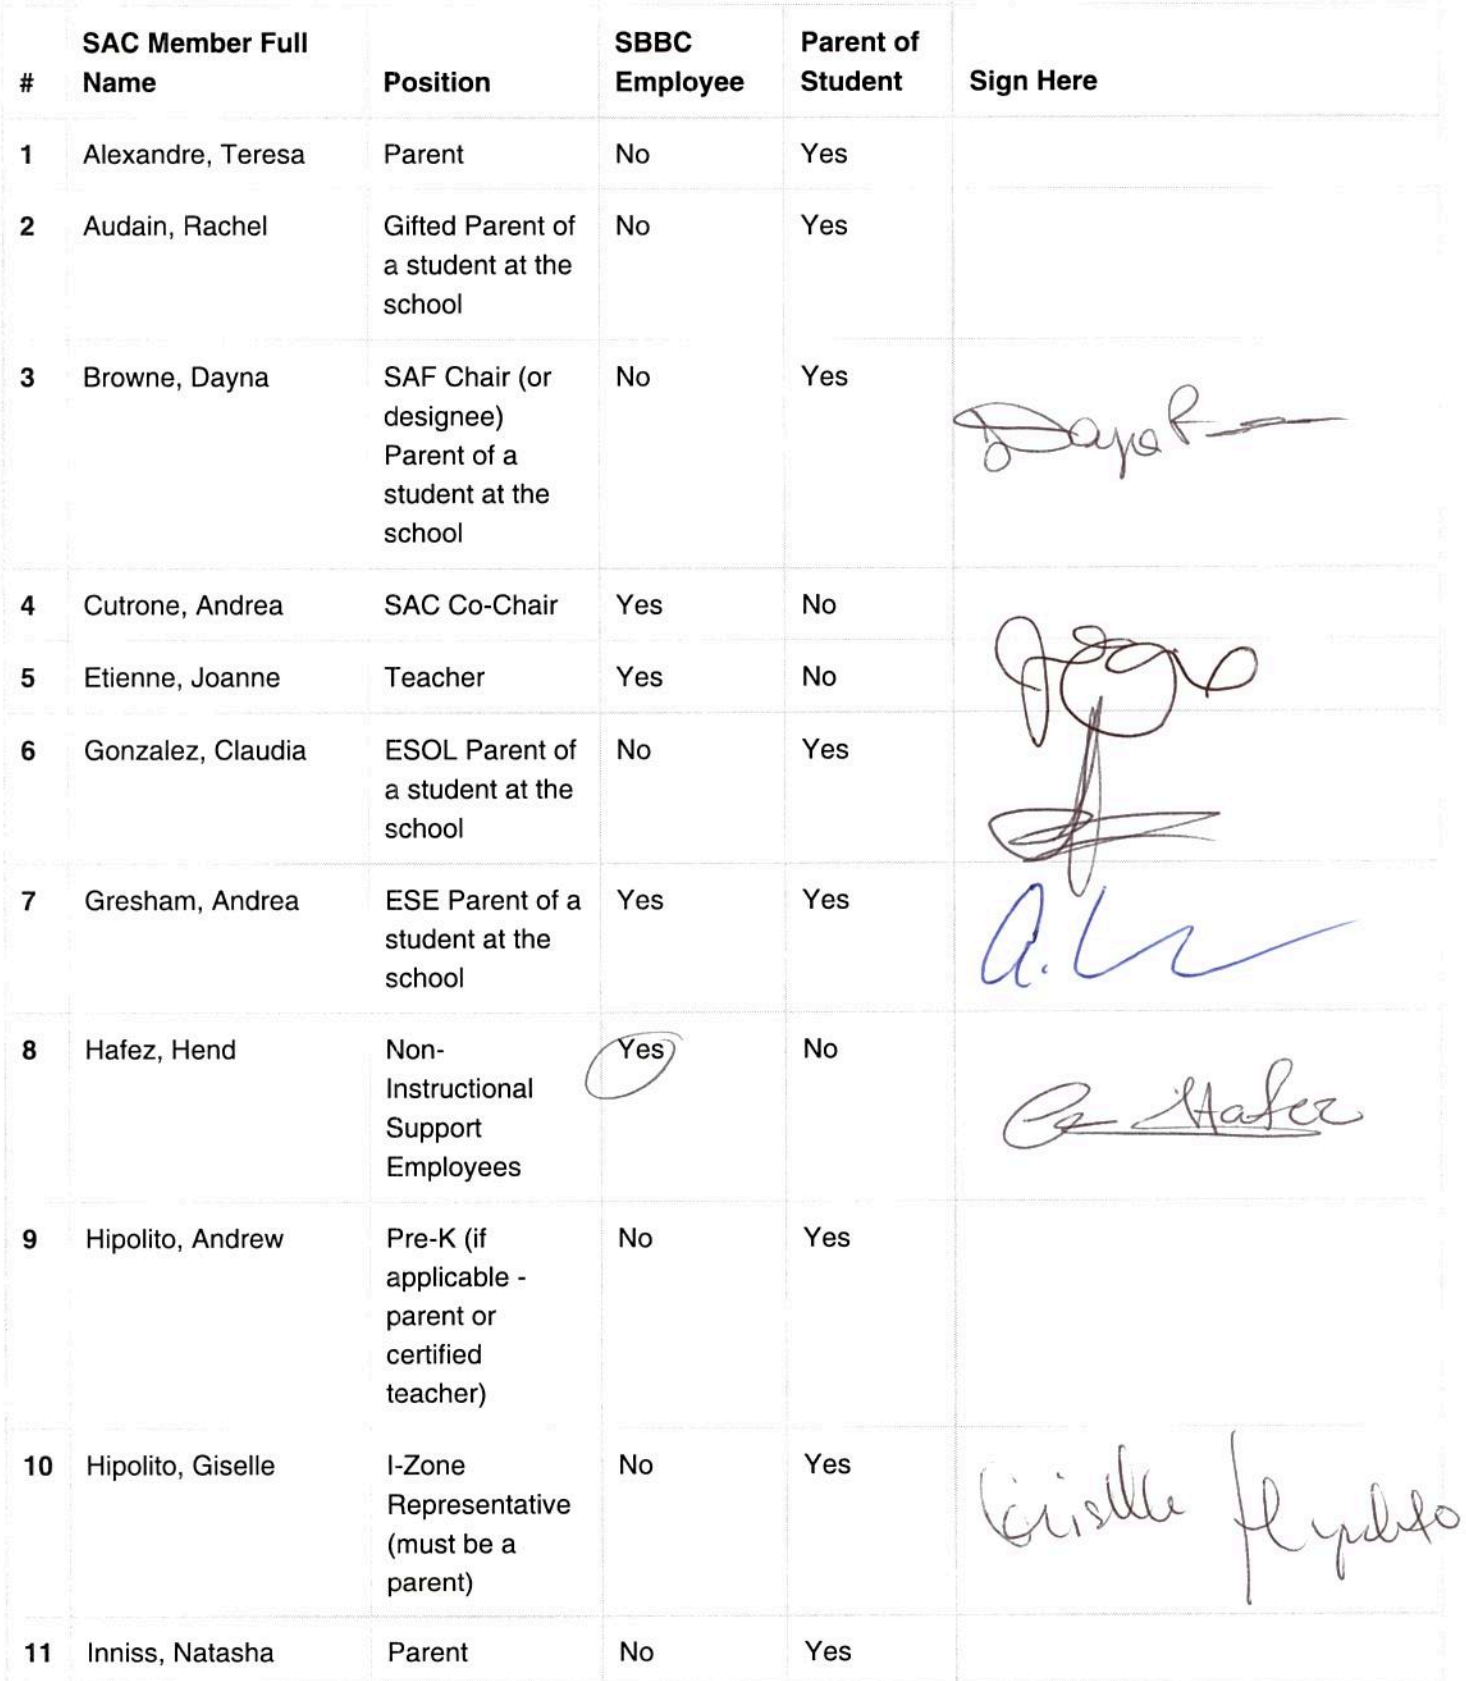 # SAC Member Full Name Position SBBC Employee Parent of Student Sign Here
1 Alexandre, Teresa Parent No Yes
2 Audain, Rachel Gifted Parent of No Yes
a student at the
school
3 Browne, Dayna SAF Chair (or No Yes
designee)
Parent of a
student at the
school
Dayna
4 Cutrone, Andrea SAC Co-Chair Yes No
5 Etienne, Joanne Teacher Yes No
6 Gonzalez, Claudia ESOL Parent of No Yes
a student at the
school
7 Gresham, Andrea ESE Parent of a Yes Yes
student at the
school
A.
8 Hafez, Hend Non- Yes No
Instructional
Support
Employees
Hafez
9 Hipolito, Andrew Pre-K (if No Yes
applicable -
parent or
certified
teacher)
10 Hipolito, Giselle I-Zone No Yes
Representative
(must be a
parent)
Giselle Hipolito
11 Inniss, Natasha Parent No Yes